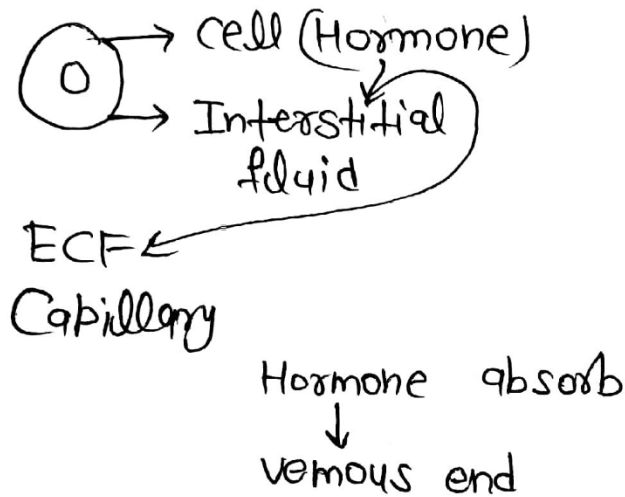 Cell (Hormone)
Interstitial
fluid
ECF
Capillary
Hormone absorb
venous end